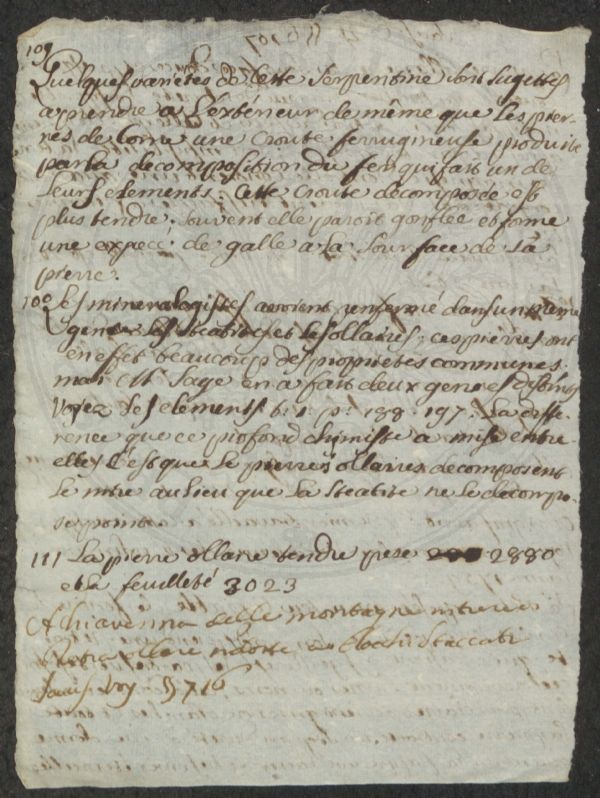 109
Quelques varietés de Cette Serpentine sont sugettes
a prendre a L'extérieur de même que Les pier-
res de Corne une Croute ferrugineuse produite
par la decomposition du fer qui fait un de
Leurs elements. Cette Croute decomposée est
plus tendre. Souvent elle paroit gonflée et forme
une expece de galle a La Sourface de La
pierre.
Les mineralogistes avoient renfermé dans un même
genre Les steatites et Les ollaires; ces pierres ont
en effet beaucoup des proprietés communes.
mais Mr Sage en a fait deux genres
Voyez Ses elements t. 1. p. 188. 197. La diffe-
rence que ce profond chimiste a mise entre
elles C'est que Le pierres ollaires decomposent
Le nitre au lieu que La steatite ne Le decompo-
se point.
111 La pierre ollaire tendre pese 2880
et la feuilleté 3023
A Chiavenna delle montagne

Saus. Voy.